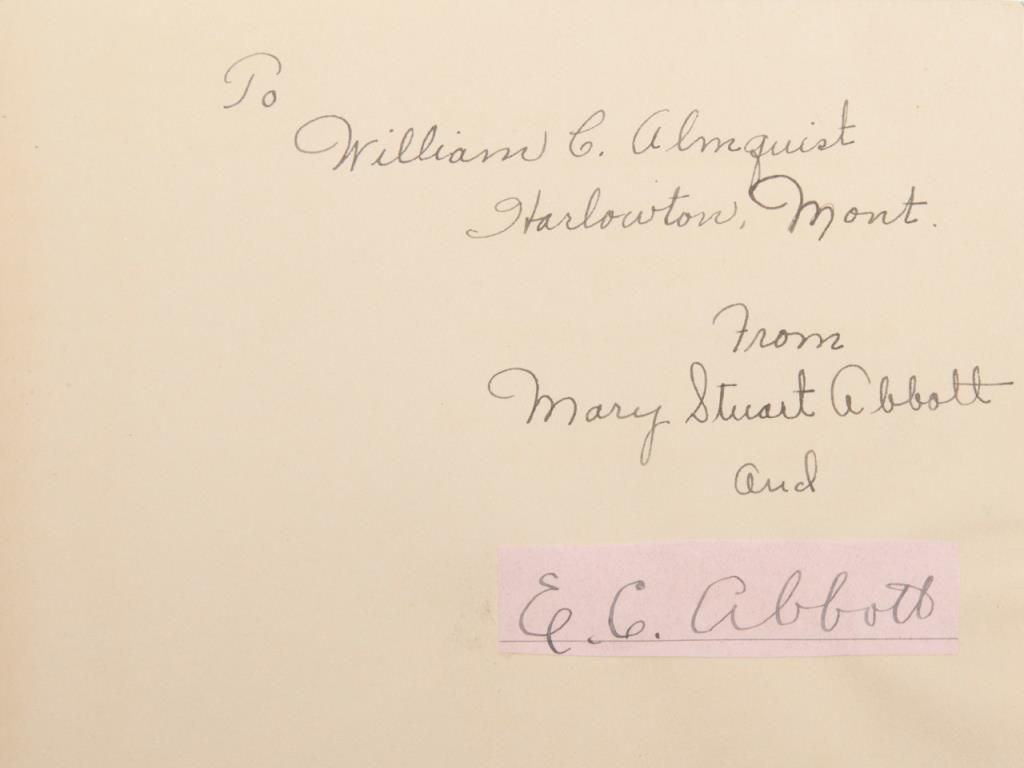 To
William C. Almquist
Harlowton, Mont.
From
Mary Stuart Abbott
and
E. C. Abbott